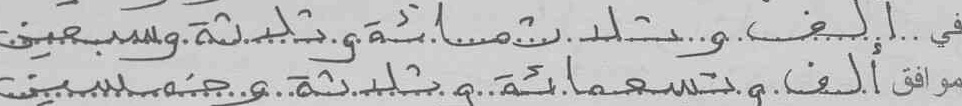 في ألف و ثلاث مائة و ثلاثة وسبعين
موافق ألف و تسعمائة و ثلاثة و خمسين